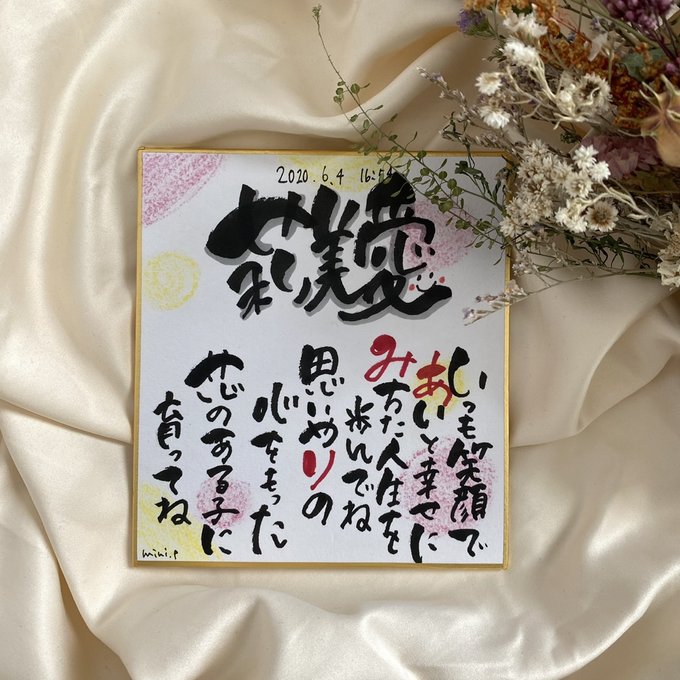 2020.6.4 16:54
愛美莉
いつも笑顔で
あいと幸せに
みちた人生を
歩んでね
思いやりの
心をもった
芯のある子に
育ってね
mini.p